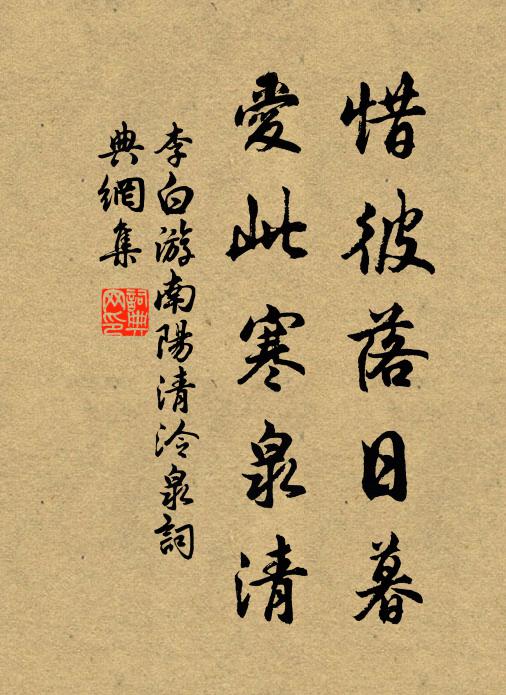 惜彼落日暮
愛此寒泉清
李白游南陽清泠泉詞
典網集
詞典
网印